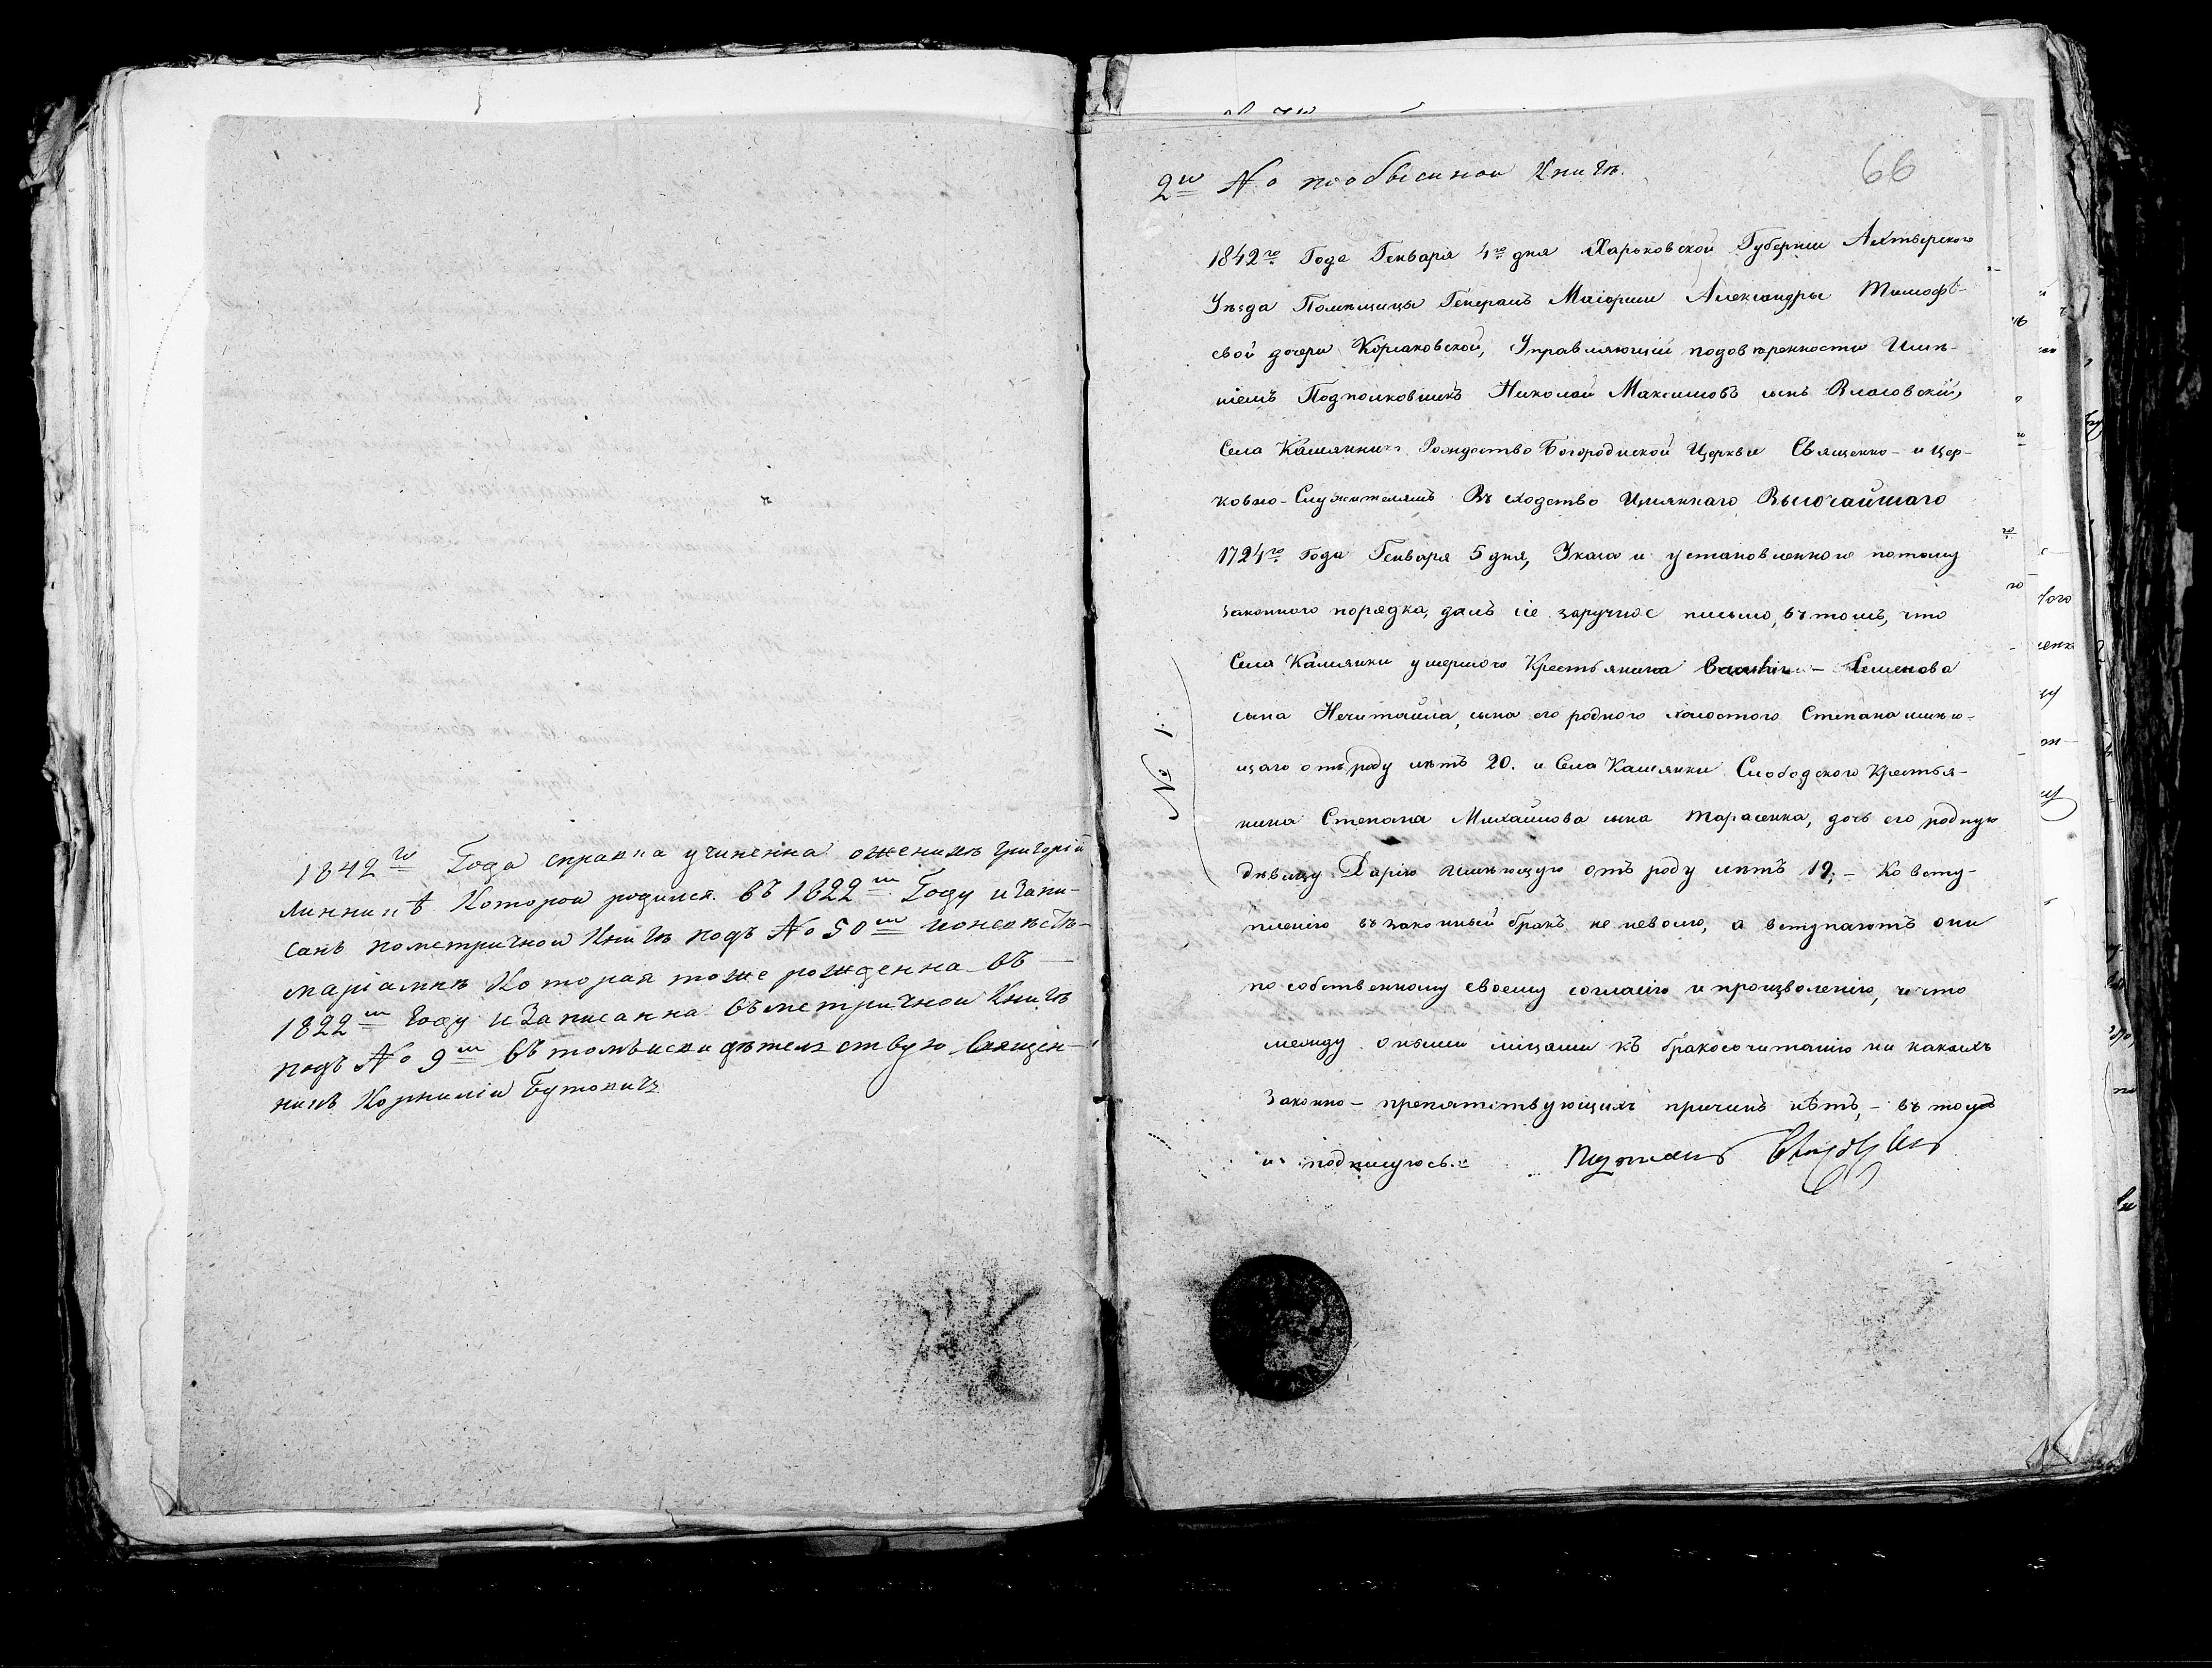 1842го Года справка учиненна оженихѣ григорій
Линникѣ Которои родился въ 1822м Году и Запи-
санъ пометричнои Книгѣ подъ No 50м ионевѣстѣ
маріамнѣ Которая тоже рожденна въ
1822м Году и Записанна въметричнои Книгѣ
подъ No 9м въ томъ Священ-
никъ Корнилій Бутовичъ
2й No пообыскнои Книгѣ.
66
1842го Года Генваря 4го дня Харьковской Губерніи Ахтырского
Уѣзда Помѣщицы Генералъ Маіорши Александры Тимофѣ-
евой дочери Корсаковской, Управляющій подовѣренности Имѣ-
ніемъ Подполковникъ Николай Максимовъ сынъ Власовскій,
Села Камянки Рождество Богородиской Церкви Священно- и Цер-
ковно-Служителямъ Въ сходство Имяннаго Высочайшаго
1724го Года Генваря 5 дня, Указа и установленного потому
законного порядка, далъ сіе заручное письмо, втомъ, что
Села Камянки умершого Крестьянина – Семенова
сына Нечитайла, сына его родного холостого Степана имѣю-
щаго отъ роду лѣтъ 20. и Села Камянки Слободского Крестья-
нина Степана Михайлова сына Тарасенка, дочь его родную
дѣвицу Дарію имѣющую отъ роду лѣтъ 19; – Ко всту-
пленію въ законный бракъ не неволю, а вступаютъ они
по собственному своему согласію и произволенію, и что
между оными лицами къ бракосочитанію ни какихъ
Законно – препятствующихъ причинъ нѣтъ, – въ томъ
и подпишуюсь.
No 1.